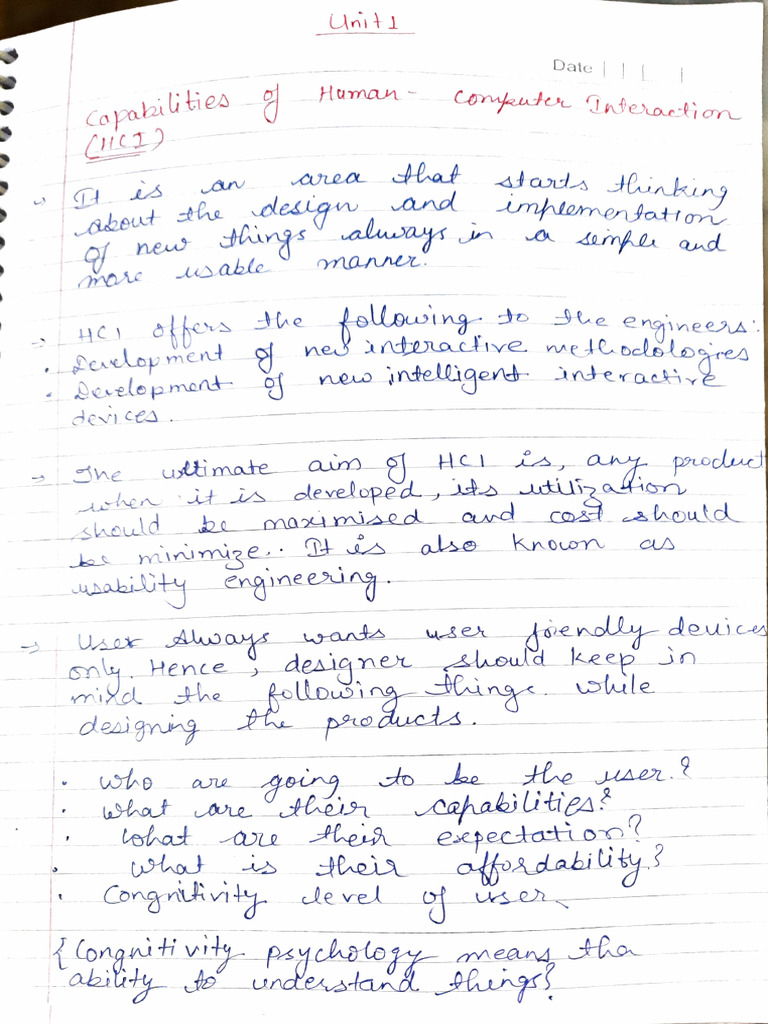 Unit 1
Date
Capabilities of Human - Computer Interaction
(HCI)
→ It is an area that starts thinking
about the design and implementation
of new things always in a simple and
more usable manner.
→ HCI offers the following to the engineers:
• Development of new interactive methodologies
• Development of new intelligent interactive
devices.
→ The ultimate aim of HCI is, any product
when it is developed, its utilization
should be maximised and cost should
be minimize.. It is also known as
usability engineering.
→ User Always wants user friendly devices
only. Hence, designer should keep in
mind the following things. while
designing the products.
• Who are going to be the user.?
• What are their capabilities?
• What are their expectation?
• What is their affordability?
• Congnitivity level of user
{Congnitivity psychology means tha
ability to understand things}